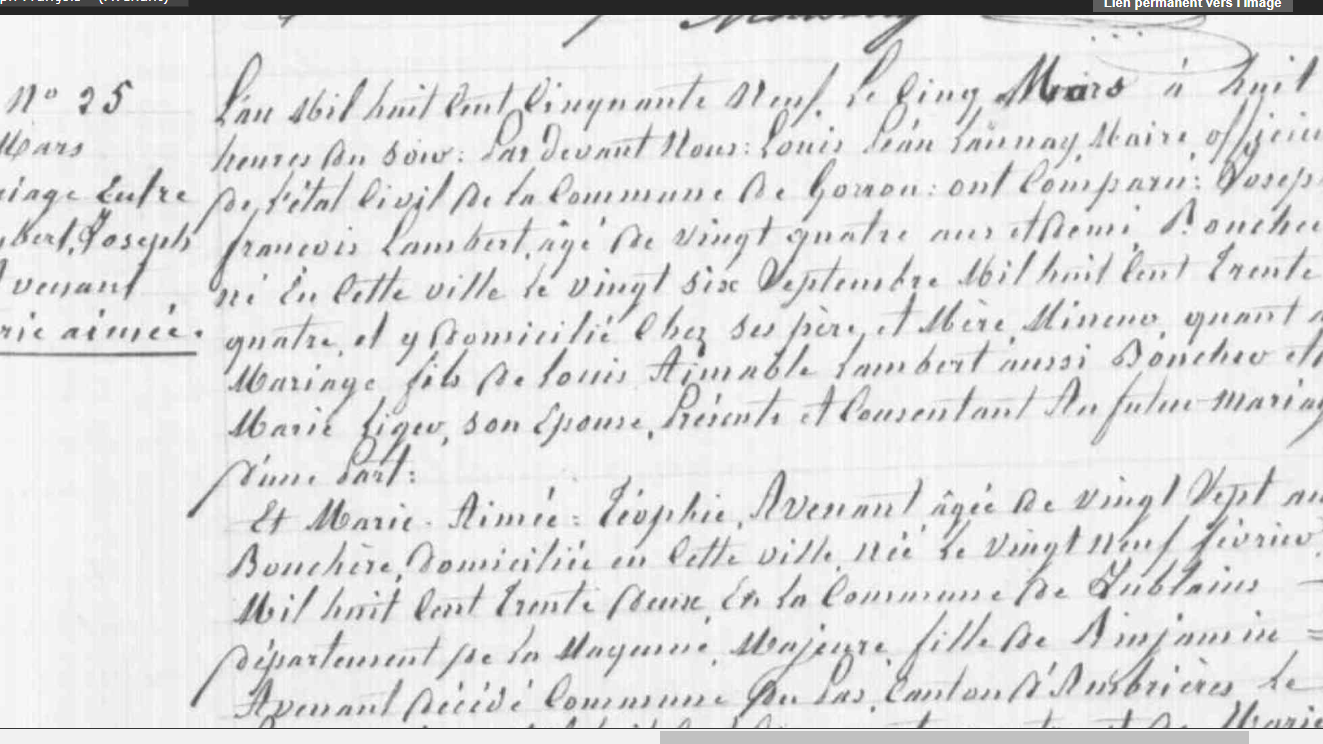 Lien permanent vers l'image
N° 25
Mars
riage Entre
bert, Joseph
Avenant
rie aimée.
L'an Mil huit Cent Cinquante Neuf Le Cinq Mars à huit
heures du soir: Par devant Nous: Louis Léan Launay, Maire, officier
de l'état Civil de la Commune de Gorron: ont Comparu: Joseph
françois Lambert, âgé de vingt quatre ans et Demi, Boucher
né En Cette ville le vingt six Septembre Mil huit Cent Trente
quatre, et y Domicilié Chez ses père, et Mère Mineur, quant a
Mariage, fils de Louis Aimable Lambert aussi Boucher et
Marie Liger, son Epouse, Présents et Consentant Au futur mariag
d'une Part:
Et Marie-Aimée: Téophie, Avenant âgée de vingt Sept an
Bouchère, Domiciliée en Cette ville, née Le vingt Neuf février
Mil huit Cent Trente deux En La Commune De Jublains
département de La Mayenne, Majeure fille De Binjamin =
Avenant décédé Commune Du Pas, Canton d'Ambrières Le
Marie